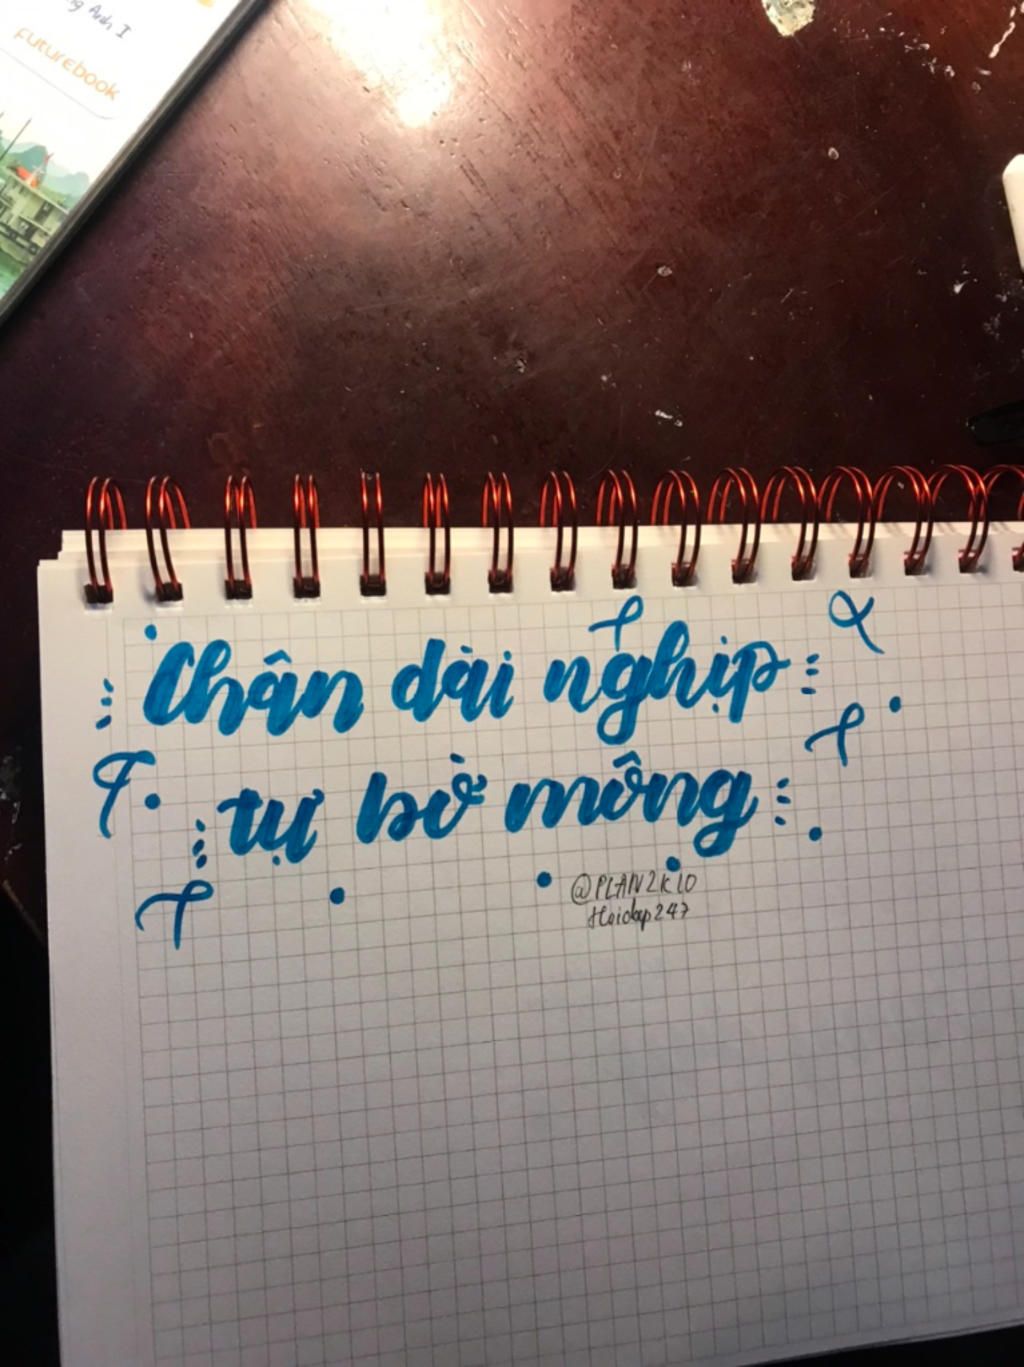 ng Anh I
futurebook
Chân dài nghịp
tự bờ mông
@PLAN2K10
Hoidap247